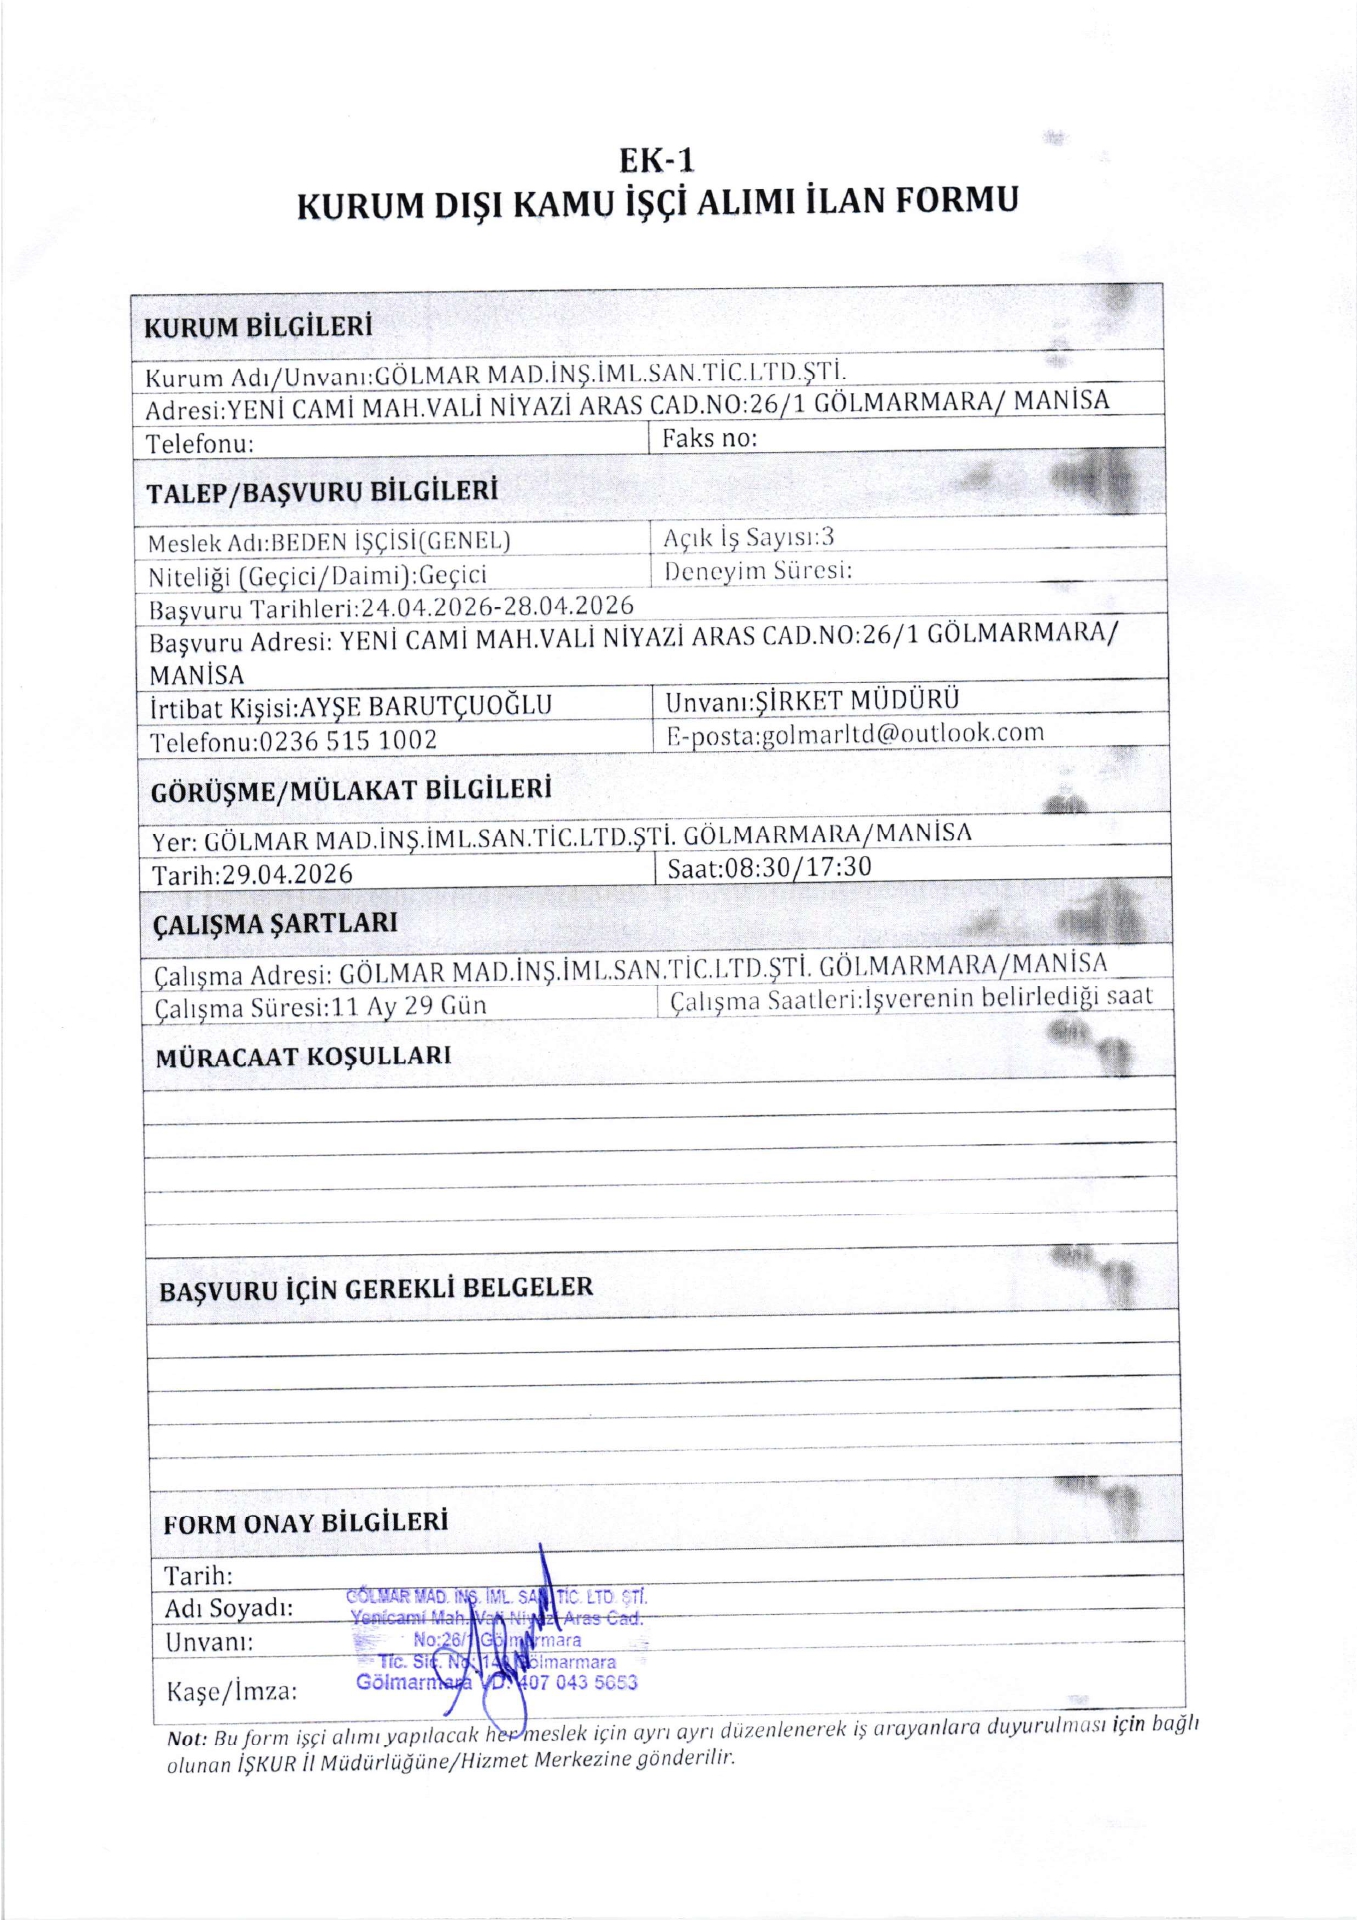 EK-1
KURUM DIŞI KAMU İŞÇİ ALIMI İLAN FORMU
KURUM BİLGİLERİ
Kurum Adı/Unvanı:GÖLMAR MAD.İNŞ.İML.SAN.TİC.LTD.ŞTİ.
Adresi:YENİ CAMİ MAH.VALİ NİYAZİ ARAS CAD.NO:26/1 GÖLMARMARA/ MANİSA
Telefonu: Faks no:
TALEP/BAŞVURU BİLGİLERİ
Meslek Adı:BEDEN İŞÇİSİ(GENEL) Açık İş Sayısı:3
Niteliği (Geçici/Daimi):Geçici Deneyim Süresi:
Başvuru Tarihleri:24.04.2026-28.04.2026
Başvuru Adresi: YENİ CAMİ MAH.VALİ NİYAZİ ARAS CAD.NO:26/1 GÖLMARMARA/
MANİSA
İrtibat Kişisi:AYŞE BARUTÇUOĞLU Unvanı:ŞİRKET MÜDÜRÜ
Telefonu:0236 515 1002 E-posta:golmarltd@outlook.com
GÖRÜŞME/MÜLAKAT BİLGİLERİ
Yer: GÖLMAR MAD.İNŞ.İML.SAN.TİC.LTD.ŞTİ. GÖLMARMARA/MANİSA
Tarih:29.04.2026 Saat:08:30/17:30
ÇALIŞMA ŞARTLARI
Çalışma Adresi: GÖLMAR MAD.İNŞ.İML.SAN.TİC.LTD.ŞTİ. GÖLMARMARA/MANİSA
Çalışma Süresi:11 Ay 29 Gün Çalışma Saatleri:İşverenin belirlediği saat
MÜRACAAT KOŞULLARI
BAŞVURU İÇİN GEREKLİ BELGELER
FORM ONAY BİLGİLERİ
Tarih:
Adı Soyadı:
Unvanı:
Kaşe/İmza:
GÖLMAR MAD. İNŞ. İML. SAN. TİC. LTD. ŞTİ.
Yenicami Mah. Vali Niyazi Aras Cad.
No:26/1 Gölmarmara
Tic. Sic. No: Gölmarmara
Gölmarmara 407 043 5653
Not: Bu form işçi alımı yapılacak her meslek için ayrı ayrı düzenlenerek iş arayanlara duyurulması için bağlı
olunan İŞKUR İl Müdürlüğüne/Hizmet Merkezine gönderilir.